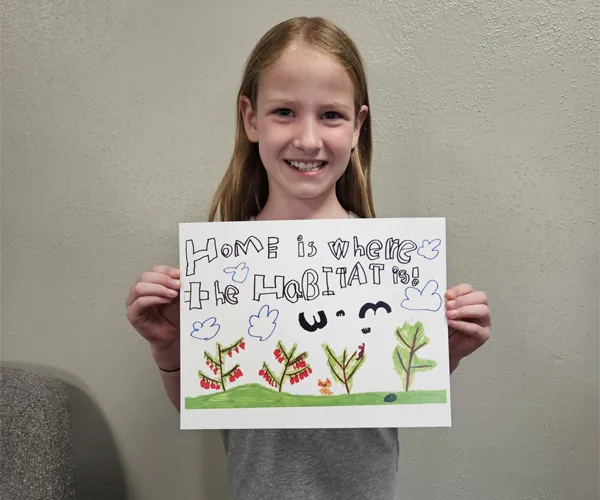 HOME is where
the HABITAT is!